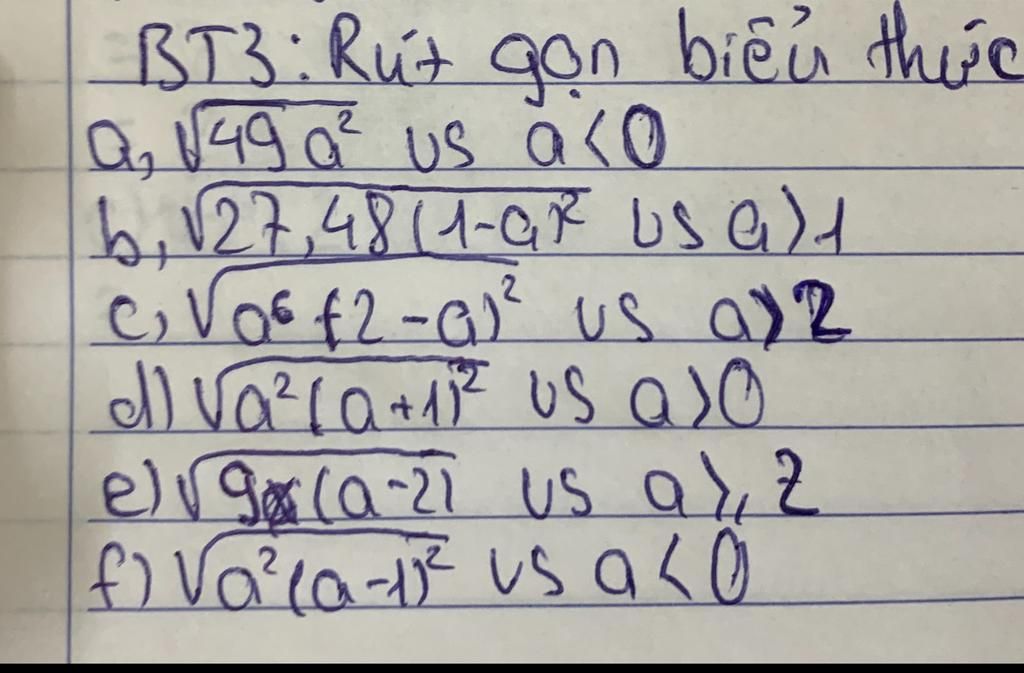 BT3: Rút gọn biểu thức
a, √49a² vs a<0
b, √27,48(1-a)² vs a>1
c, √a⁶(2-a)² vs a>2
d) √a²(a+1)² vs a>0
e) √9(a-2) vs a>, 2
f) √a²(a-1)² vs a<0